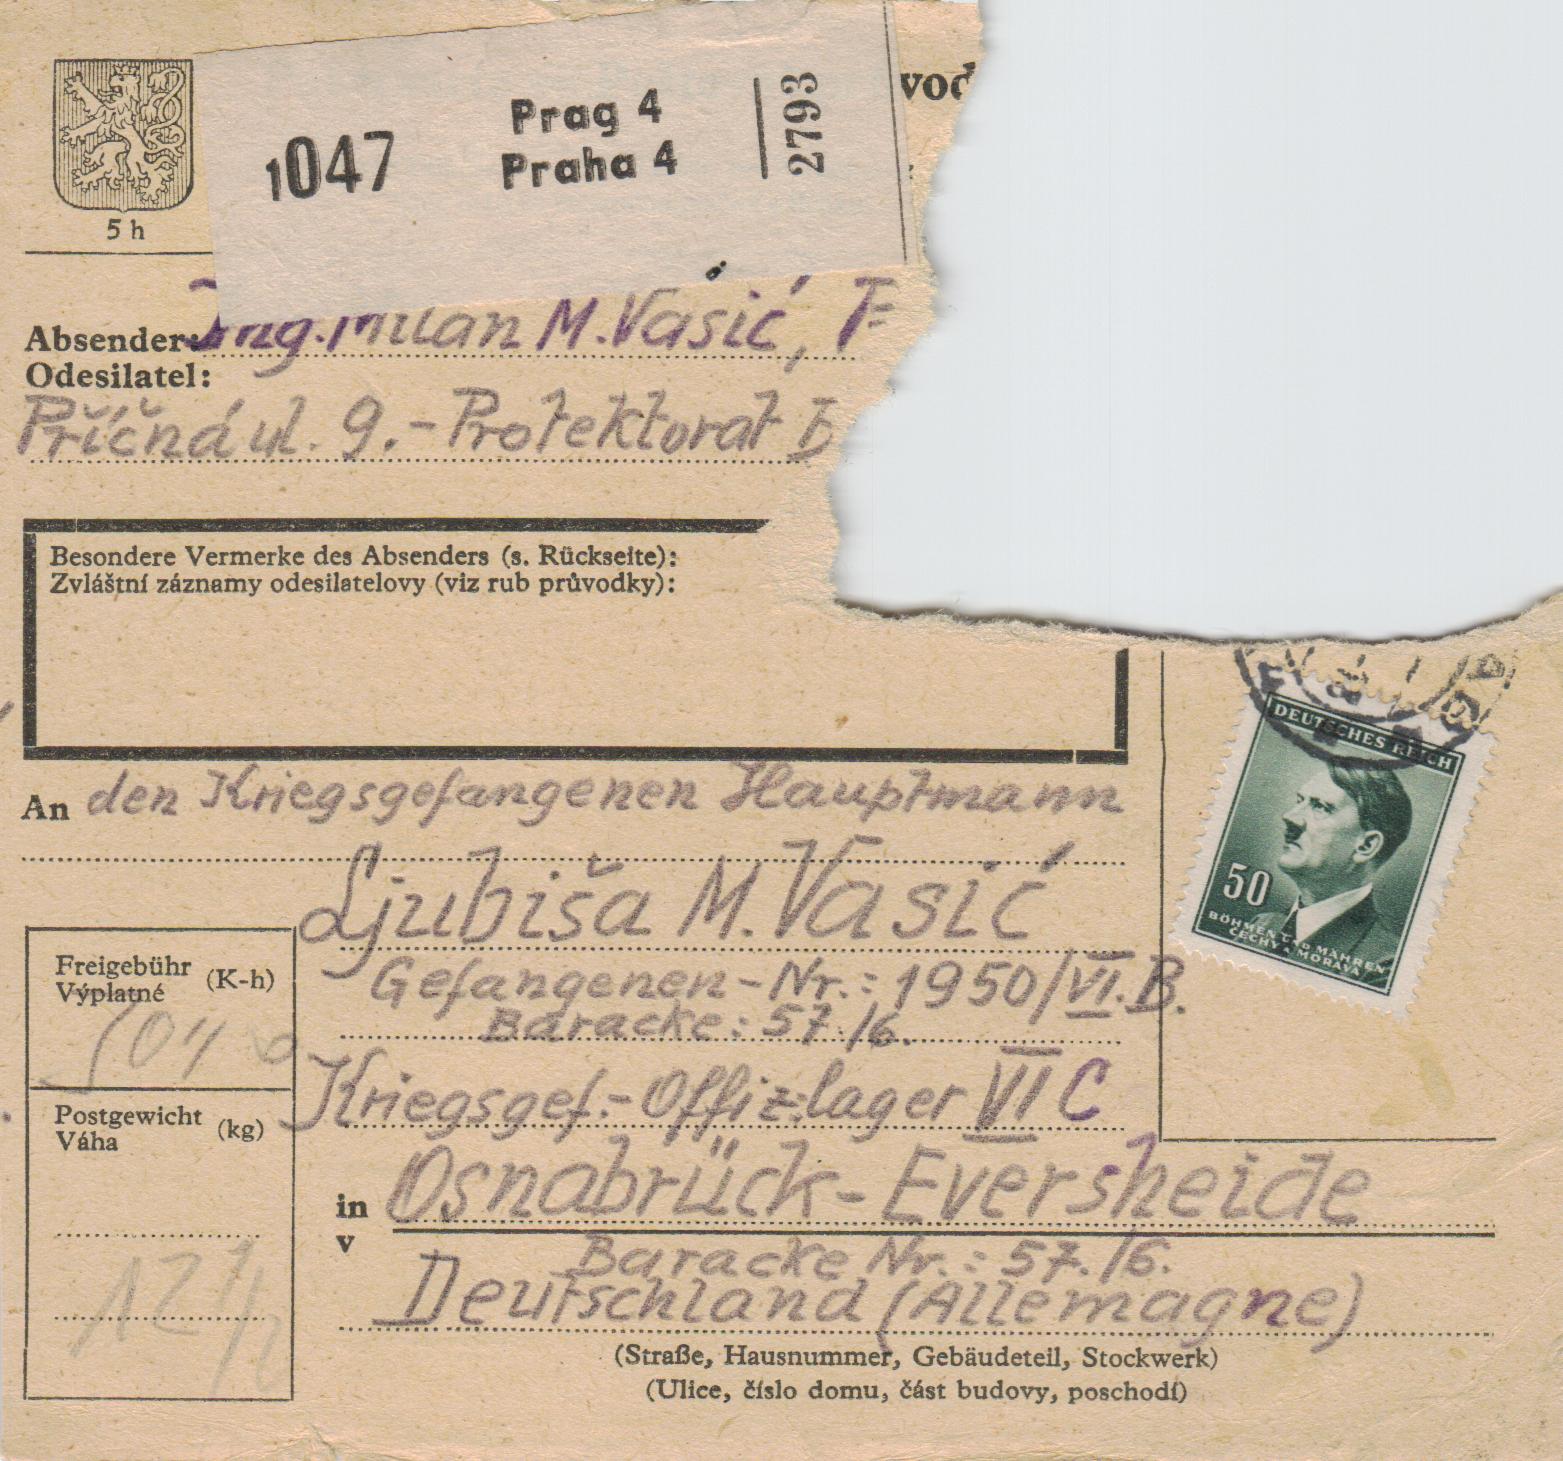 1047
Prag 4
Praha 4
2793
5 h
Absender: Ing. Milan M. Vasić,
Odesilatel:
Příčná ul. 9. - Protektorat
Besondere Vermerke des Absenders (s. Rückseite):
Zvláštní záznamy odesilatelovy (viz rub průvodky):
DEUTSCHES REICH
50
BÖHMEN UND MÄHREN
ČECHY A MORAVA
An den Kriegsgefangenen Hauptmann
Ljubiša M. Vasić
Gefangenen-Nr.: 1950/VI. B.
Baracke: 57./6.
Freigebühr (K-h)
Výplatné
Postgewicht (kg)
Váha
12 1/2
Kriegsgef.-Offiz.lager VI C
in Osnabrück-Eversheide
v
Baracke Nr.: 57./6.
Deutschland (Allemagne)
(Straße, Hausnummer, Gebäudeteil, Stockwerk)
(Ulice, číslo domu, část budovy, poschodí)